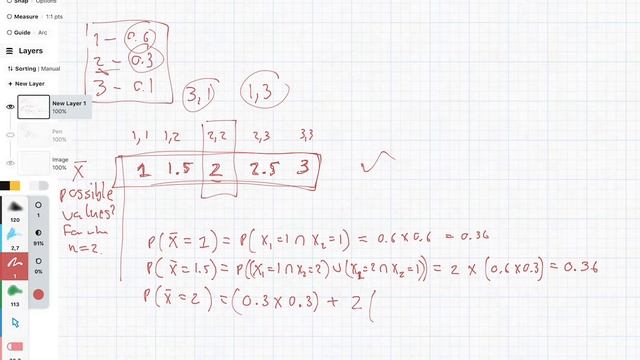 Snap Options
Measure 1:1 pts
Guide Arc
Layers
Sorting | Manual
+ New Layer
New Layer 1
100%
Pen
100%
Image
100%
120
2,7
1
113
1
91%
0%
1 – 0.6
2 – 0.3
3 – 0.1
3,1 1,3
1,1 1,2 2,2 2,3 3,3
X̄ 1 1.5 2 2.5 3
possible
values?
n=2.
P(X̄=1) = P(X₁=1 ∩ X₂=1) = 0.6×0.6 = 0.36
P(X̄=1.5) = P((X₁=1∩X₂=2)∪(X₁=2∩X₂=1)) = 2 × (0.6×0.3) = 0.36
P(X̄=2) = (0.3×0.3) + 2(